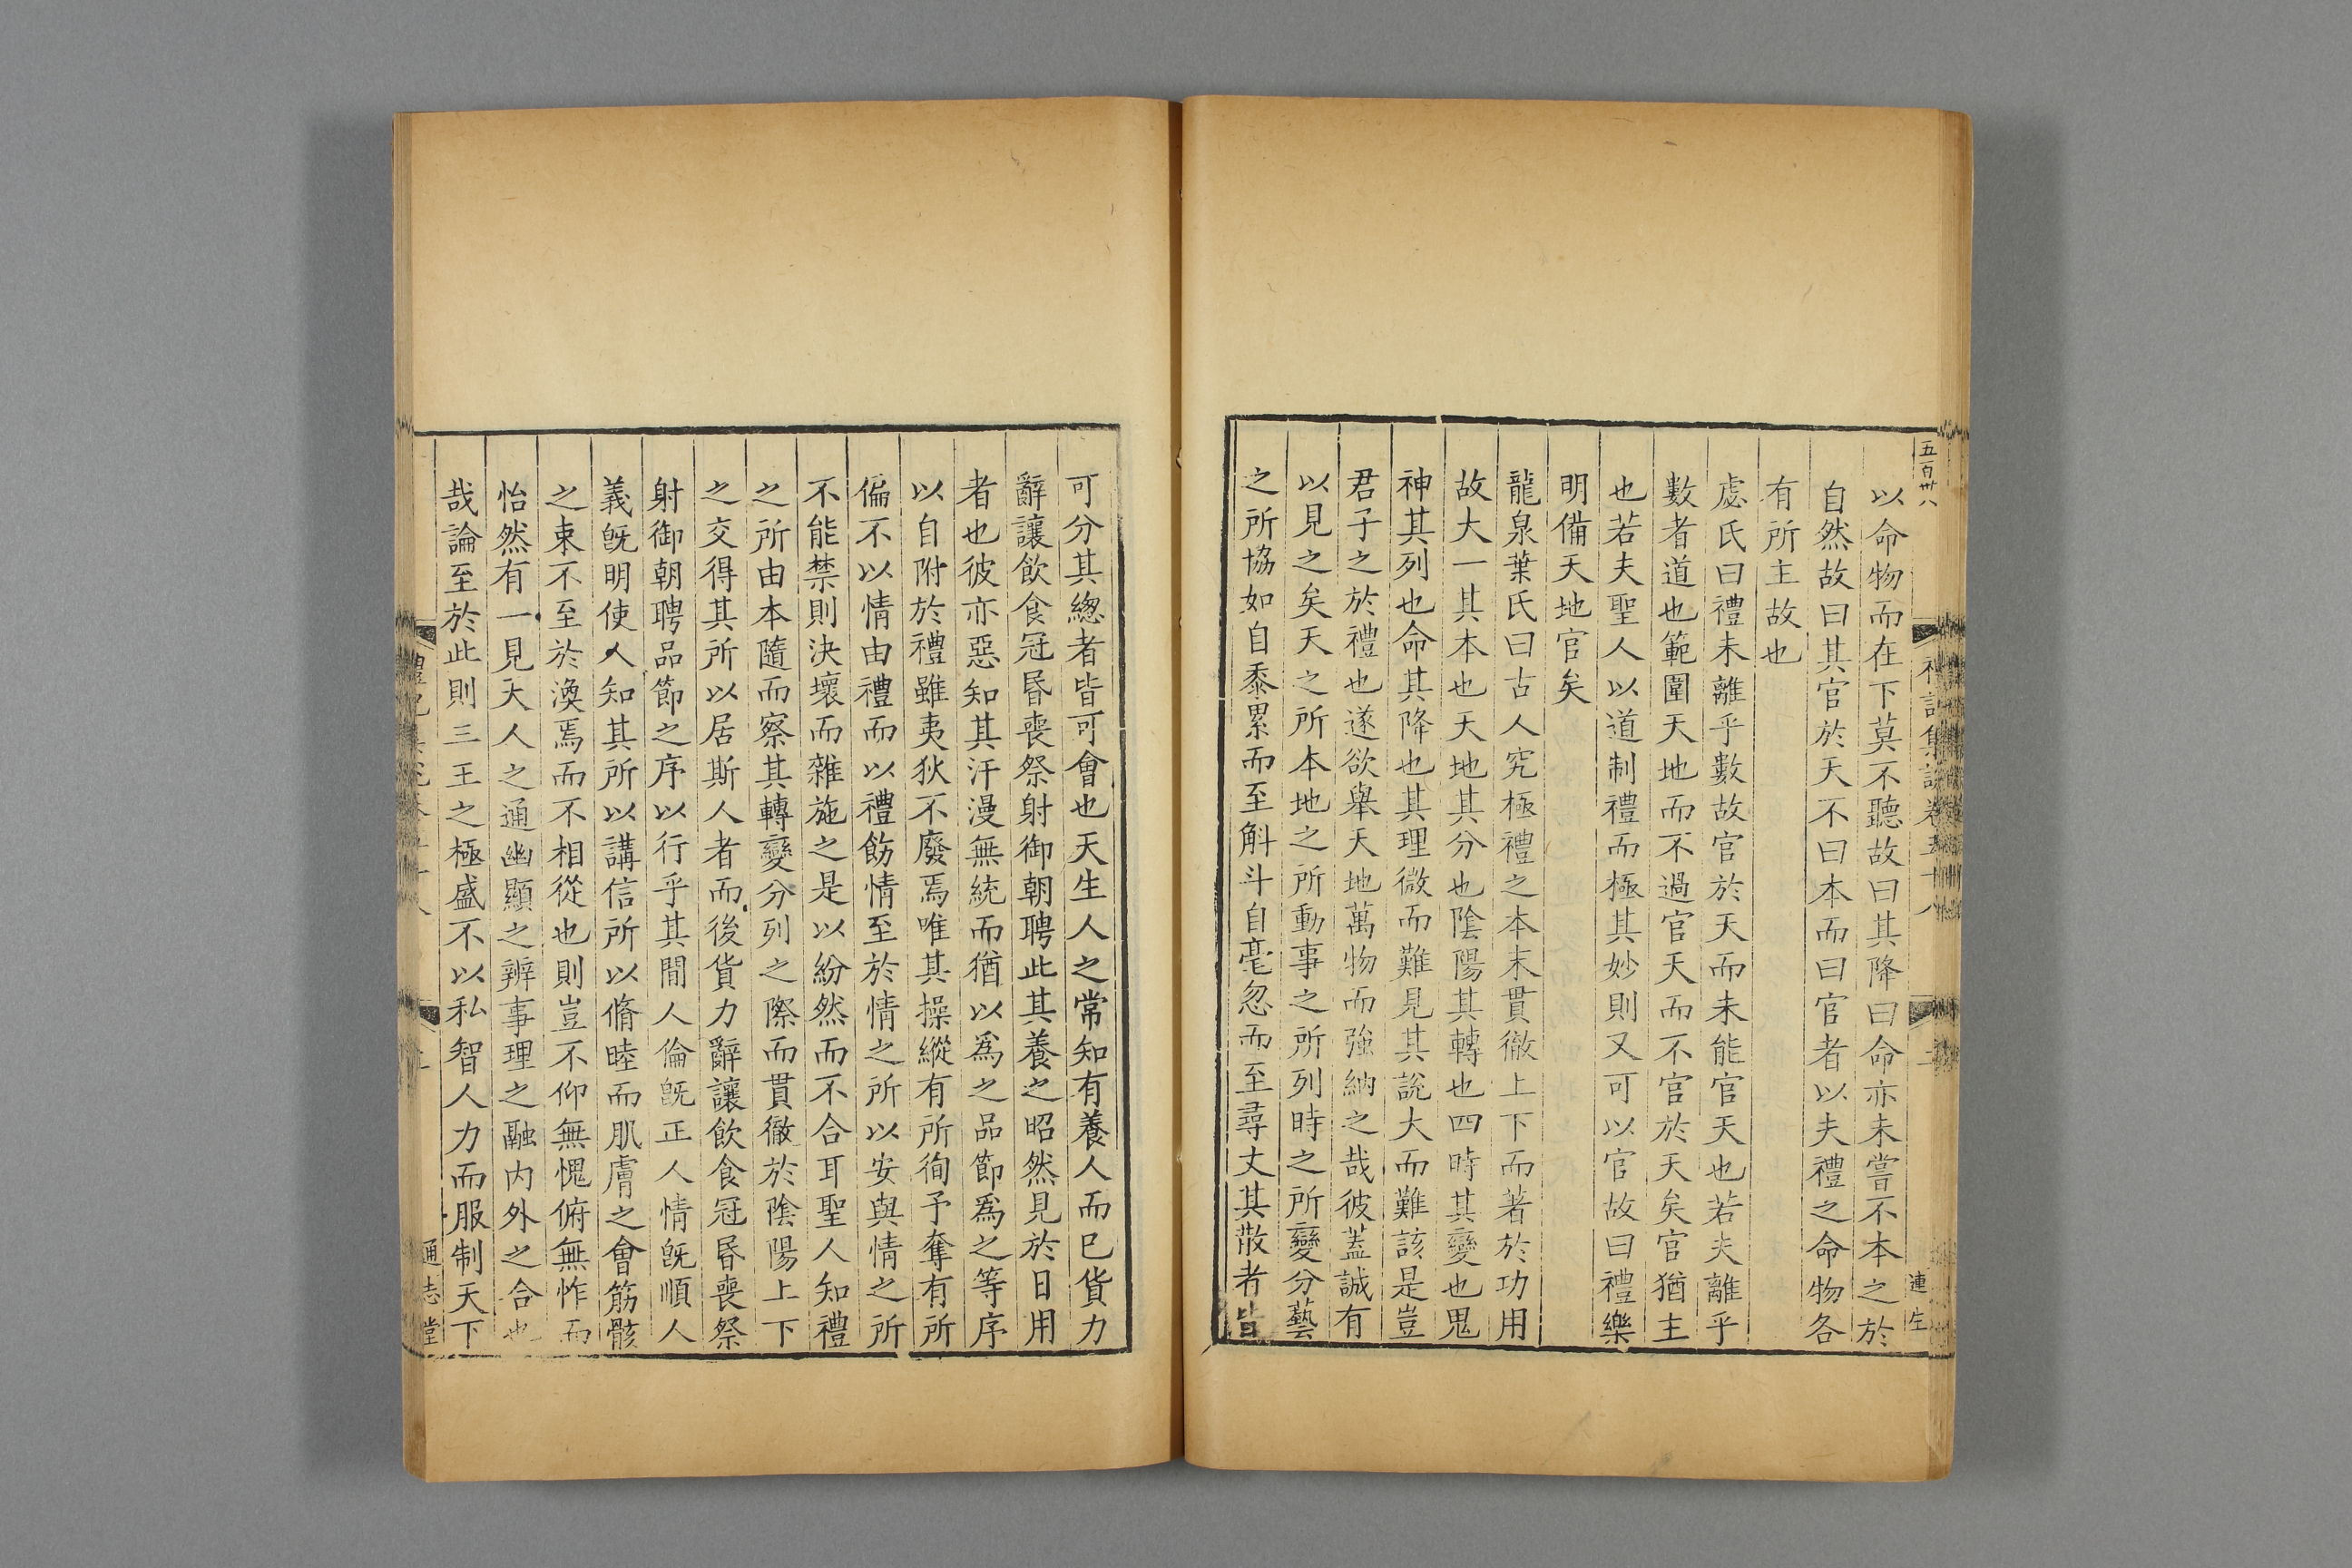 五百卅八
以命物而在下莫不聽故曰其降曰命亦未嘗不本之於
自然故曰其官於天不曰本而曰官者以夫禮之命物各
有所主故也
慮氏曰禮未離乎數故官於天而未能官天也若夫離乎
數者道也範圍天地而不過官天而不官於天矣官猶主
也若夫聖人以道制禮而極其妙則又可以官故曰禮樂
明備天地官矣
龍泉葉氏曰古人究極禮之本末貫徹上下而著於功用
故大一其本也天地其分也陰陽其轉也四時其變也鬼
神其列也命其降也其理微而難見其說大而難該是豈
君子之於禮也遂欲舉天地萬物而強納之哉彼蓋誠有
以見之矣天之所本地之所動事之所列時之所變分藝
之所協如自黍累而至斛斗自毫忽而至尋丈其散者皆
可分其緫者皆可會也天生人之常知有養人而已貨力
辭讓飲食冠昏喪祭射御朝聘此其養之昭然見於日用
者也彼亦惡知其汗漫無統而猶以為之品節為之等序
以自附於禮雖夷狄不廢焉唯其操縱有所徇予奪有所
偏不以情由禮而以禮飭情至於情之所以安與情之所
不能禁則決壞而雜施之是以紛然而不合耳聖人知禮
之所由本隨而察其轉變分列之際而貫徹於陰陽上下
之交得其所以居斯人者而後貨力辭讓飲食冠昏喪祭
射御朝聘品節之序以行乎其閒人倫旣正人情旣順人
義旣明使人知其所以講信所以脩睦而肌膚之會筋骸
之束不至於渙焉而不相從也則豈不仰無愧俯無怍而
怡然有一見天人之通幽顯之辨事理之融内外之合也
哉論至於此則三王之極盛不以私智人力而服制天下
禮記集說卷五十八
通志堂